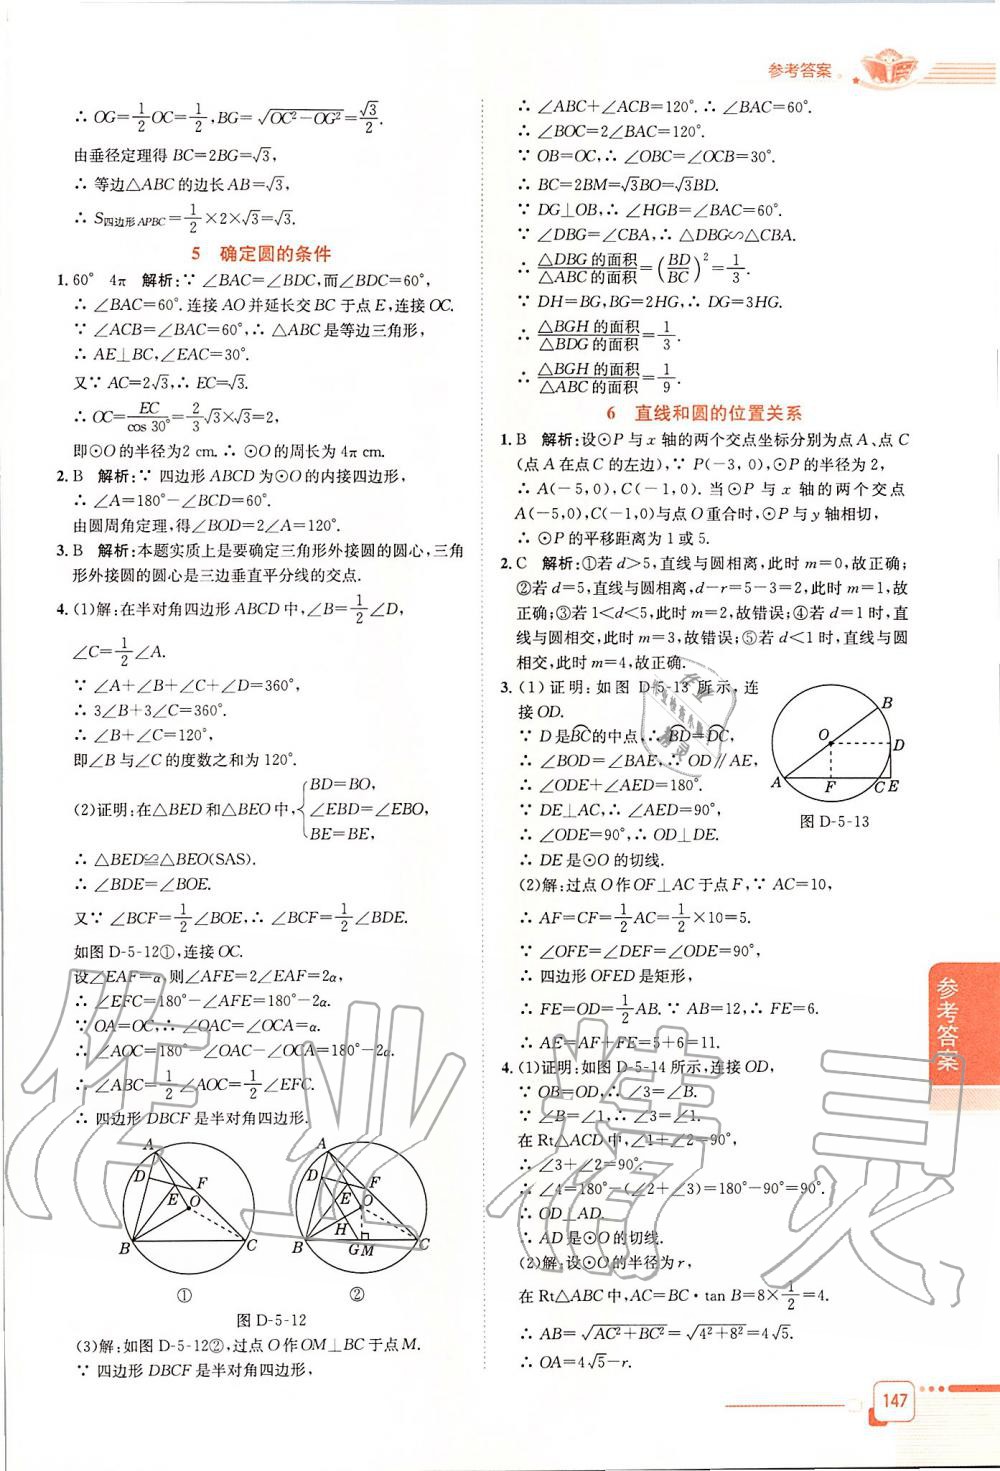 参考答案
∴ OG=1/2 OC=1/2,BG=√(OC²-OG²)=√3/2.
由垂径定理得 BC=2BG=√3,
∴ 等边△ABC 的边长 AB=√3,
∴ S四边形APBC=1/2×2×√3=√3.
5 确定圆的条件
1. 60° 4π 解析:∵ ∠BAC=∠BDC,而∠BDC=60°,
∴ ∠BAC=60°.连接 AO 并延长交 BC 于点 E,连接 OC.
∵ ∠ACB=∠BAC=60°,∴ △ABC 是等边三角形,
∴ AE⊥BC,∠EAC=30°.
又∵ AC=2√3,∴ EC=√3.
∴ OC=EC/cos 30°=2/3√3×√3=2,
即⊙O 的半径为2 cm.∴ ⊙O 的周长为 4π cm.
2. B 解析:∵ 四边形 ABCD 为⊙O 的内接四边形,
∴ ∠A=180°-∠BCD=60°.
由圆周角定理,得∠BOD=2∠A=120°.
3. B 解析:本题实质上是要确定三角形外接圆的圆心,三角
形外接圆的圆心是三边垂直平分线的交点.
4. (1)解:在半对角四边形 ABCD 中,∠B=1/2∠D,
∠C=1/2∠A.
∵ ∠A+∠B+∠C+∠D=360°,
∴ 3∠B+3∠C=360°.
∴ ∠B+∠C=120°,
即∠B与∠C的度数之和为 120°.
(2)证明:在△BED 和△BEO 中,{BD=BO,
∠EBD=∠EBO,
BE=BE,
∴ △BED≌△BEO(SAS).
∴ ∠BDE=∠BOE.
又∵ ∠BCF=1/2∠BOE,∴ ∠BCF=1/2∠BDE.
如图 D-5-12①,连接 OC.
设∠EAF=α,则∠AFE=2∠EAF=2α,
∴ ∠EFC=180°-∠AFE=180°-2α.
∵ OA=OC,∴ ∠OAC=∠OCA=α.
∴ ∠AOC=180°-∠OAC-∠OCA=180°-2α.
∴ ∠ABC=1/2∠AOC=1/2∠EFC.
∴ 四边形 DBCF 是半对角四边形.
A D F E O B C
A D F E O H B G M C
① ②
图 D-5-12
(3)解:如图 D-5-12②,过点 O 作 OM⊥BC 于点 M.
∵ 四边形 DBCF 是半对角四边形,
∴ ∠ABC+∠ACB=120°.∴ ∠BAC=60°.
∴ ∠BOC=2∠BAC=120°.
∵ OB=OC,∴ ∠OBC=∠OCB=30°.
∴ BC=2BM=√3BO=√3BD.
∵ DG⊥OB,∴ ∠HGB=∠BAC=60°.
∵ ∠DBG=∠CBA,∴ △DBG∽△CBA.
∴ △DBG的面积/△ABC的面积=(BD/BC)²=1/3.
∵ DH=BG,BG=2HG,∴ DG=3HG.
∴ △BGH的面积/△BDG的面积=1/3.
∴ △BGH的面积/△ABC的面积=1/9.
6 直线和圆的位置关系
1. B 解析:设⊙P 与 x 轴的两个交点坐标分别为点 A、点 C
(点 A 在点 C 的左边),∵ P(-3,0),⊙P 的半径为 2,
∴ A(-5,0),C(-1,0).当⊙P 与 x 轴的两个交点
A(-5,0),C(-1,0)与点 O 重合时,⊙P 与 y 轴相切,
∴ ⊙P 的平移距离为 1 或 5.
2. C 解析:①若 d>5,直线与圆相离,此时 m=0,故正确;
②若 d=5,直线与圆相离,d-r=5-3=2,此时 m=1,故
正确;③若 1<d<5,此时 m=2,故错误;④若 d=1 时,直
线与圆相交,此时 m=3,故错误;⑤若 d<1 时,直线与圆
相交,此时 m=4,故正确.
3. (1)证明:如图 D-5-13 所示,连
接 OD.
∵ D 是BC的中点,∴ BD=DC,
∴ ∠BOD=∠BAE,∴ OD∥AE,
∴ ∠ODE+∠AED=180°.
∵ DE⊥AC,∴ ∠AED=90°,
∴ ∠ODE=90°,∴ OD⊥DE.
∴ DE 是⊙O 的切线.
B O D A F C E
图 D-5-13
(2)解:过点 O 作 OF⊥AC 于点 F,∵ AC=10,
∴ AF=CF=1/2AC=1/2×10=5.
∵ ∠OFE=∠DEF=∠ODE=90°,
∴ 四边形 OFED 是矩形,
∴ FE=OD=1/2AB.∵ AB=12,∴ FE=6.
∴ AE=AF+FE=5+6=11.
4. (1)证明:如图 D-5-14 所示,连接 OD,
∵ OB=OD,∴ ∠3=∠B.
∵ ∠B=∠1,∴ ∠3=∠1.
在 Rt△ACD 中,∠1+∠2=90°,
∴ ∠3+∠2=90°.
∴ ∠4=180°-(∠2+∠3)=180°-90°=90°.
∴ OD⊥AD.
∴ AD 是⊙O 的切线.
(2)解:设⊙O 的半径为 r,
在 Rt△ABC 中,AC=BC·tan B=8×1/2=4.
∴ AB=√(AC²+BC²)=√(4²+8²)=4√5.
∴ OA=4√5-r.
参考答案
147
作业精灵